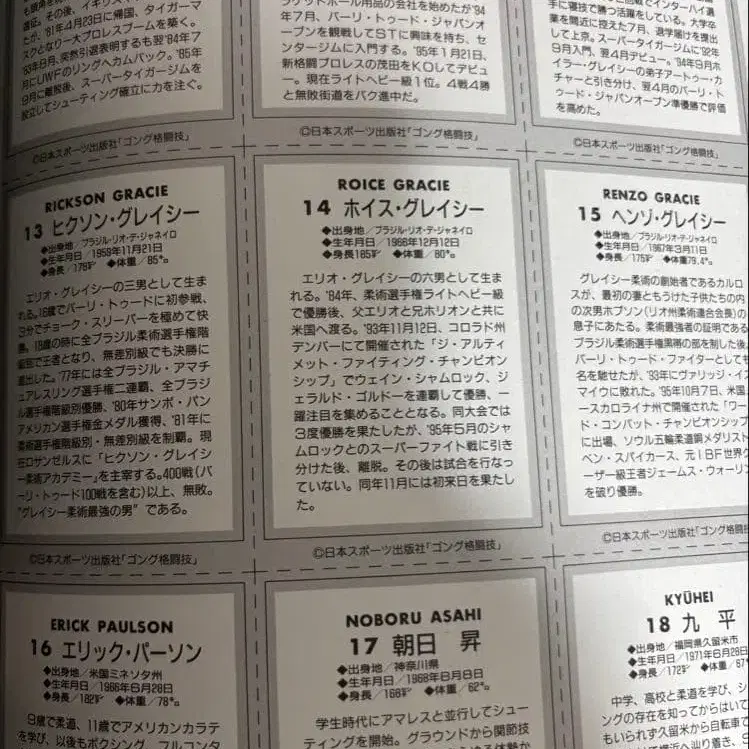 進征。その後、イギリス
たが、'81年4月23日に帰国、タイガーマ
スクとなり一大プロレスブームを築く。
'83年9月、突然引退表明するも翌'84年7
月にUWFのリングへカムバック。'85年
9月に離脱後、スーパータイガージムを
設立してシューティング確立に力を注ぐ。
©日本スポーツ出版社「ゴング格闘技」
ラケットボール用品の会社を始めたが'94
年7月、バーリ・トゥード・ジャパンオ
ープンを観戦してSTに興味を持ち、セ
ンタージムに入門する。'95年1月21日、
新格闘プロレスの茂田をKOしてデビュ
ー。現在ライトヘビー級1位。4戦4勝
と無敗街道をバク進中だ。
©日本スポーツ出版社「ゴング格闘技」
手に寝技で勝つ活躍をしている。大学卒
業を間近に控えた7月、退学届けを提出
して上京。スーパータイガージムに'92年
9月入門、翌4月デビュー。'94年9月ホ
イラー・グレイシーの弟子アートゥー・カ
チャーと引き分け、翌4月のバーリ・ト
ゥード・ジャパンオープン準優勝で評価
を高めた。
©日本スポーツ出版社「ゴング格闘技」
RICKSON GRACIE
13 ヒクソン・グレイシー
◆出身地／ブラジル・リオ・デ・ジャネイロ
◆生年月日／1959年11月21日
◆身長／178㌢ ◆体重／85㌔
エリオ・グレイシーの三男として生ま
れる。18歳でバーリ・トゥードに初参戦、
3分でチョーク・スリーパーを極めて快
勝。19歳の時に全ブラジル柔術選手権階
級別で王者となり、無差別級でも決勝に
進出した。'77年には全ブラジル・アマチ
ュアレスリング選手権二連覇、全ブラジ
ル選手権階級別優勝、'80年サンボ・パン
アメリカン選手権金メダル獲得、'81年に
柔術選手権階級別・無差別級を制覇。現
在ロサンゼルスに「ヒクソン・グレイシ
ー柔術アカデミー」を主宰する。400戦(バ
ーリ・トゥード100戦を含む)以上、無敗。
"グレイシー柔術最強の男"である。
©日本スポーツ出版社「ゴング格闘技」
ROICE GRACIE
14 ホイス・グレイシー
◆出身地／ブラジル・リオ・デ・ジャネイロ
◆生年月日／1966年12月12日
◆身長／185㌢ ◆体重／80㌔
エリオ・グレイシーの六男として生ま
れる。'84年、柔術選手権ライトヘビー級
で優勝後、父エリオと兄ホリオンと共に
米国へ渡る。'93年11月12日、コロラド州
デンバーにて開催された「ジ・アルティ
メット・ファイティング・チャンピオン
シップ」でウェイン・シャムロック、ジ
ェラルド・ゴルドーを連覇して優勝、一
躍注目を集めることとなる。同大会では
3度優勝を果たしたが、'95年5月のシャ
ムロックとのスーパーファイト戦に引き
分けた後、離脱。その後は試合を行なっ
ていない。同年11月には初来日を果たし
た。
©日本スポーツ出版社「ゴング格闘技」
RENZO GRACIE
15 ヘンゾ・グレイシー
◆出身地／ブラジル・リオ・デ・ジャネイロ
◆生年月日／1967年3月11日
◆身長／175㌢ ◆体重79.4㌔
グレイシー柔術の創始者であるカルロ
スが、最初の妻ともうけた子供たちの内
の次男ホブソン(リオ州柔術連合会長)の
息子にあたる。柔術最強者の証明である
ブラジル柔術選手権黒帯の部を制した後。
バーリ・トゥード・ファイターとしても
名を馳せたが、'93年にヴァリッジ・イズ
マイウに敗れた。'95年10月7日、米国
ースカロライナ州で開催された「ワー
ド・コンバット・チャンピオンシップ
に出場、ソウル五輪柔道銅メダリスト
ベン・スパイカース、元IBF世界ク
ーザー級王者ジェームス・ウォーリン
を破り優勝。
©日本スポーツ出版社「ゴング格闘技」
ERICK PAULSON
16 エリック・パーソン
◆出身地／米国ミネソタ州
◆生年月日／1966年6月28日
◆身長／182㌢ ◆体重／78㌔
9歳で柔道、11歳でアメリカンカラテ
を学び、以後もボクシング、フルコンタ
NOBORU ASAHI
17 朝日 昇
◆出身地／神奈川県
◆生年月日／1968年8月8日
◆身長／168㌢ ◆体重／62㌔
学生時代にアマレスと並行してシュー
ティングを開始。グラウンドから関節技
KYŪHEI
18 九 平
◆出身地／福岡県久留米市
◆生年月日／1971年6月28日
◆身長／172㌢ ◆体重／67
中学、高校と柔道を学び、シ
ングの存在を知ってからはいて
もいられず久留米から自転車で